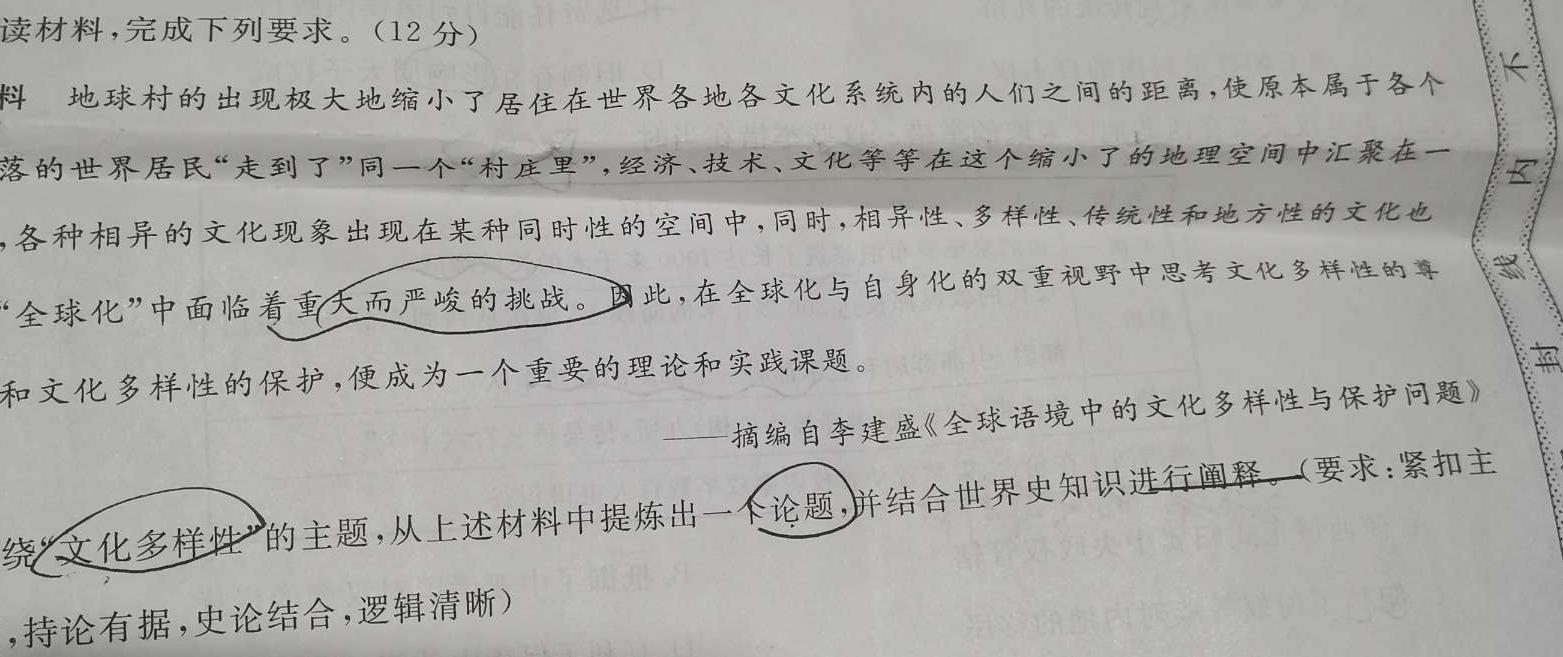 读材料,完成下列要求。(12 分)
料 地球村的出现极大地缩小了居住在世界各地各文化系统内的人们之间的距离,使原本属于各个
落的世界居民“走到了”同一个“村庄里”,经济、技术、文化等等在这个缩小了的地理空间中汇聚在一
,各种相异的文化现象出现在某种同时性的空间中,同时,相异性、多样性、传统性和地方性的文化也
“全球化”中面临着重大而严峻的挑战。因此,在全球化与自身化的双重视野中思考文化多样性的尊
和文化多样性的保护,便成为一个重要的理论和实践课题。
——摘编自李建盛《全球语境中的文化多样性与保护问题》
绕“文化多样性”的主题,从上述材料中提炼出一个论题,并结合世界史知识进行阐释。(要求:紧扣主
,持论有据,史论结合,逻辑清晰)
不
内
线
封